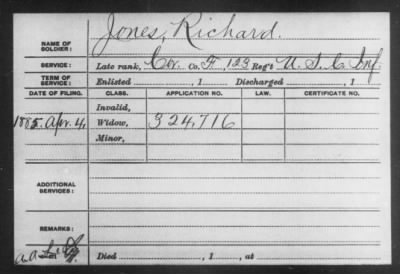 Jones, Richard.
NAME OF SOLDIER:
SERVICE: Late rank, Co. F, 123 Reg't U. S. C. Inf.
TERM OF SERVICE: Enlisted , 1 Discharged , 1
DATE OF FILING. CLASS. APPLICATION NO. LAW. CERTIFICATE NO.
Invalid,
1885. Apr. 4. Widow, 324,716
Minor,
ADDITIONAL SERVICES:
REMARKS:
Died , 1 , at